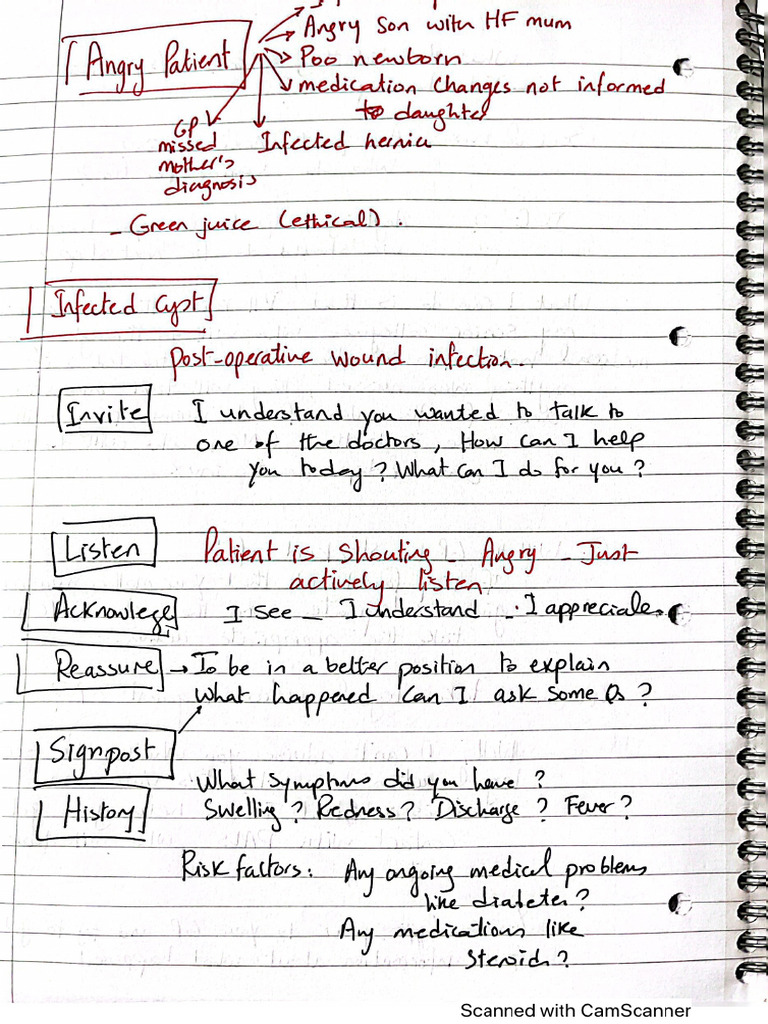 Angry son with HF mum
Angry Patient
Poo newborn
medication changes not informed
to daughter
GP
missed
mother's
diagnosis
Infected hernia
- Green juice (ethical).
Infected Cyst
post-operative wound infection.
Invite
I understand you wanted to talk to
one of the doctors, How can I help
you today? What can I do for you?
Listen
Patient is shouting - Angry - Just
actively listen
Acknowlege
I see - I understand - I appreciate.
Reassure → To be in a better position to explain
what happened can I ask some Qs?
Signpost
What symptoms did you have?
History
Swelling? Redness? Discharge? Fever?
Risk factors: Any ongoing medical problems
like diabetes?
Any medications like
steroids?
Scanned with CamScanner